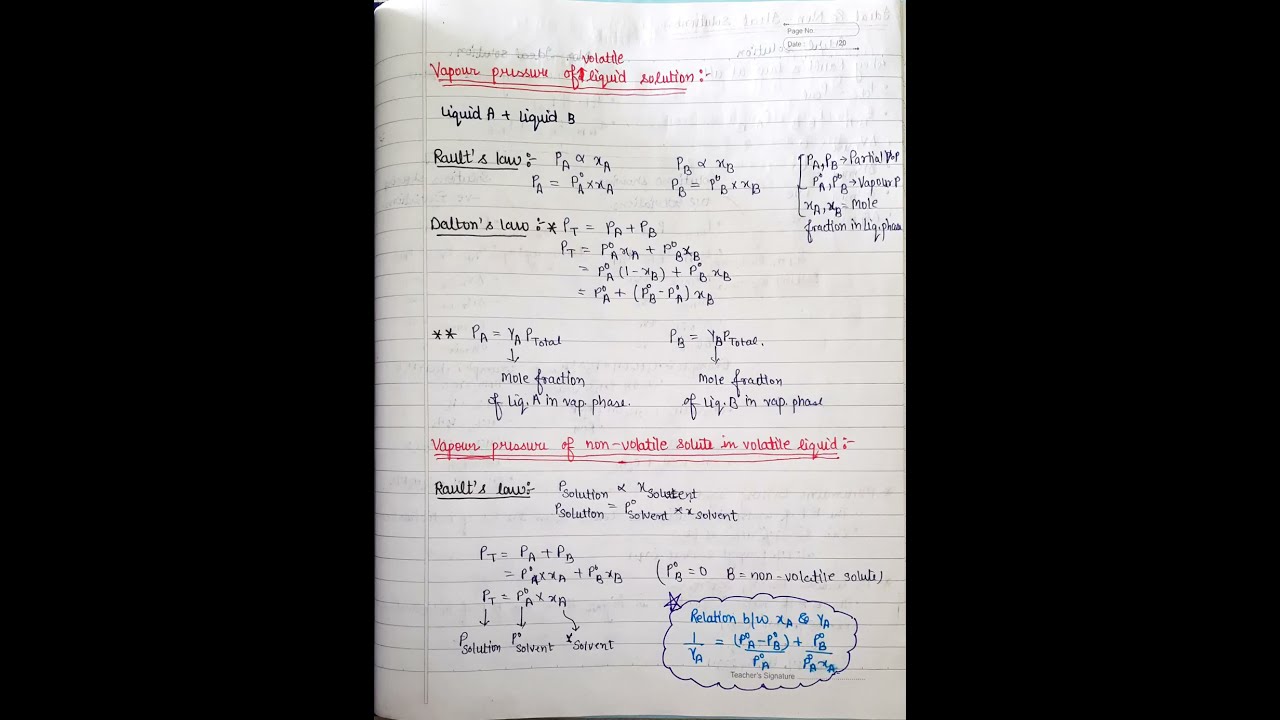 Page No.
Date: / /20
volatile
Vapour pressure of liquid solution :-
Liquid A + Liquid B
Rault's law :- P_A ∝ x_A P_B ∝ x_B
P_A = P°_A × x_A P_B = P°_B × x_B
P_A, P_B → Partial V.P
P°_A, P°_B → Vapour P
x_A, x_B = Mole
fraction in Liq. phase
Dalton's law :- * P_T = P_A + P_B
P_T = P°_A x_A + P°_B x_B
= P°_A (1 - x_B) + P°_B x_B
= P°_A + (P°_B - P°_A) x_B
** P_A = Y_A P_Total P_B = Y_B P_Total.
↓ ↓
Mole fraction Mole fraction
of Liq. A in vap. phase. of Liq. B in vap. phase
Vapour pressure of non-volatile solute in volatile liquid :-
Rault's law :- P_solution ∝ x_solvent
P_solution = P°_solvent × x_solvent
P_T = P_A + P_B
= P°_A × x_A + P°_B x_B (P°_B = 0 B = non-volatile solute)
P_T = P°_A × x_A
↓ ↓ ↘
P_solution P°_solvent x_solvent
Relation b/w x_A & Y_A
1/Y_A = (P°_A - P°_B)/P°_A + P°_B/P°_A x_A
Teacher's Signature